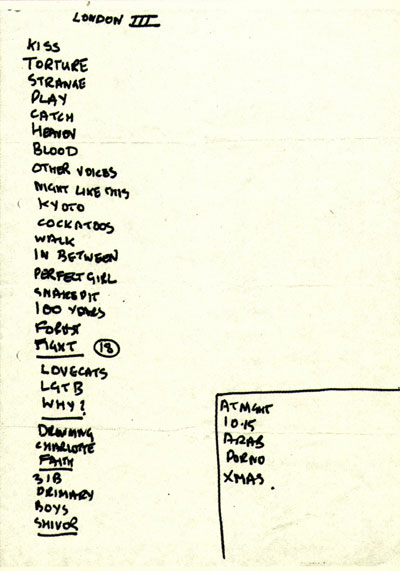 LONDON III
KISS
TORTURE
STRANGE
PLAY
CATCH
HEAVEN
BLOOD
OTHER VOICES
NIGHT LIKE THIS
KYOTO
COCKATOOS
WALK
IN BETWEEN
PERFECT GIRL
SNAKEPIT
100 YEARS
FOREST
FIGHT 18
LOVECATS
LGTB
WHY?
DROWNING
CHARLOTTE
FAITH
3IB
PRIMARY
BOYS
SHIVER
AT NIGHT
10.15
ARAB
PORNO
XMAS.